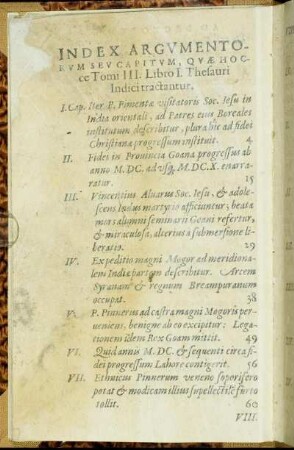 INDEX ARGVMENTO-
RVM SEV CAPITVM, QVÆ HOC-
ce Tomi III. Libro I. Thesauri
Indici tractantur.
I. Cap. Iter P. Pimentæ visitatoris Soc. Iesu in
India orientali, ad Patres eius Boreales
institutum describitur, plura hic ad fidei
Christianæ progressum instituit. 4
II. Fides in Prouincia Goana progressus ab
anno M.DC. ad vsq; M.DC.X. enarra-
ratur. 15
III. Vincentius Aluarus Soc. Iesu, & adole-
scens Indus martyrio afficiuntur, beata
mors alumni seminarij Goani refertur,
& miraculosa, alterius à submersione li-
beratio. 29
IV. Expeditio magni Mogur ad meridiona-
lem Indiæ partem describitur. Arcem
Syranam & regnum Brempuranum
occupat. 38
V. P. Pinnerus ad castra magni Mogoris per-
uenicus, benigne ab eo excipitur: Lega-
tionem idem Rex Goam mittit. 49
VI. Quid annis M.DC. & sequenti circa fi-
dei progressum Lahore contigerit. 56
VII. Ethnicus Pinnerum veneno soporifero
potat & modicam illius supellectilē furto
tollit. 60
VIII.